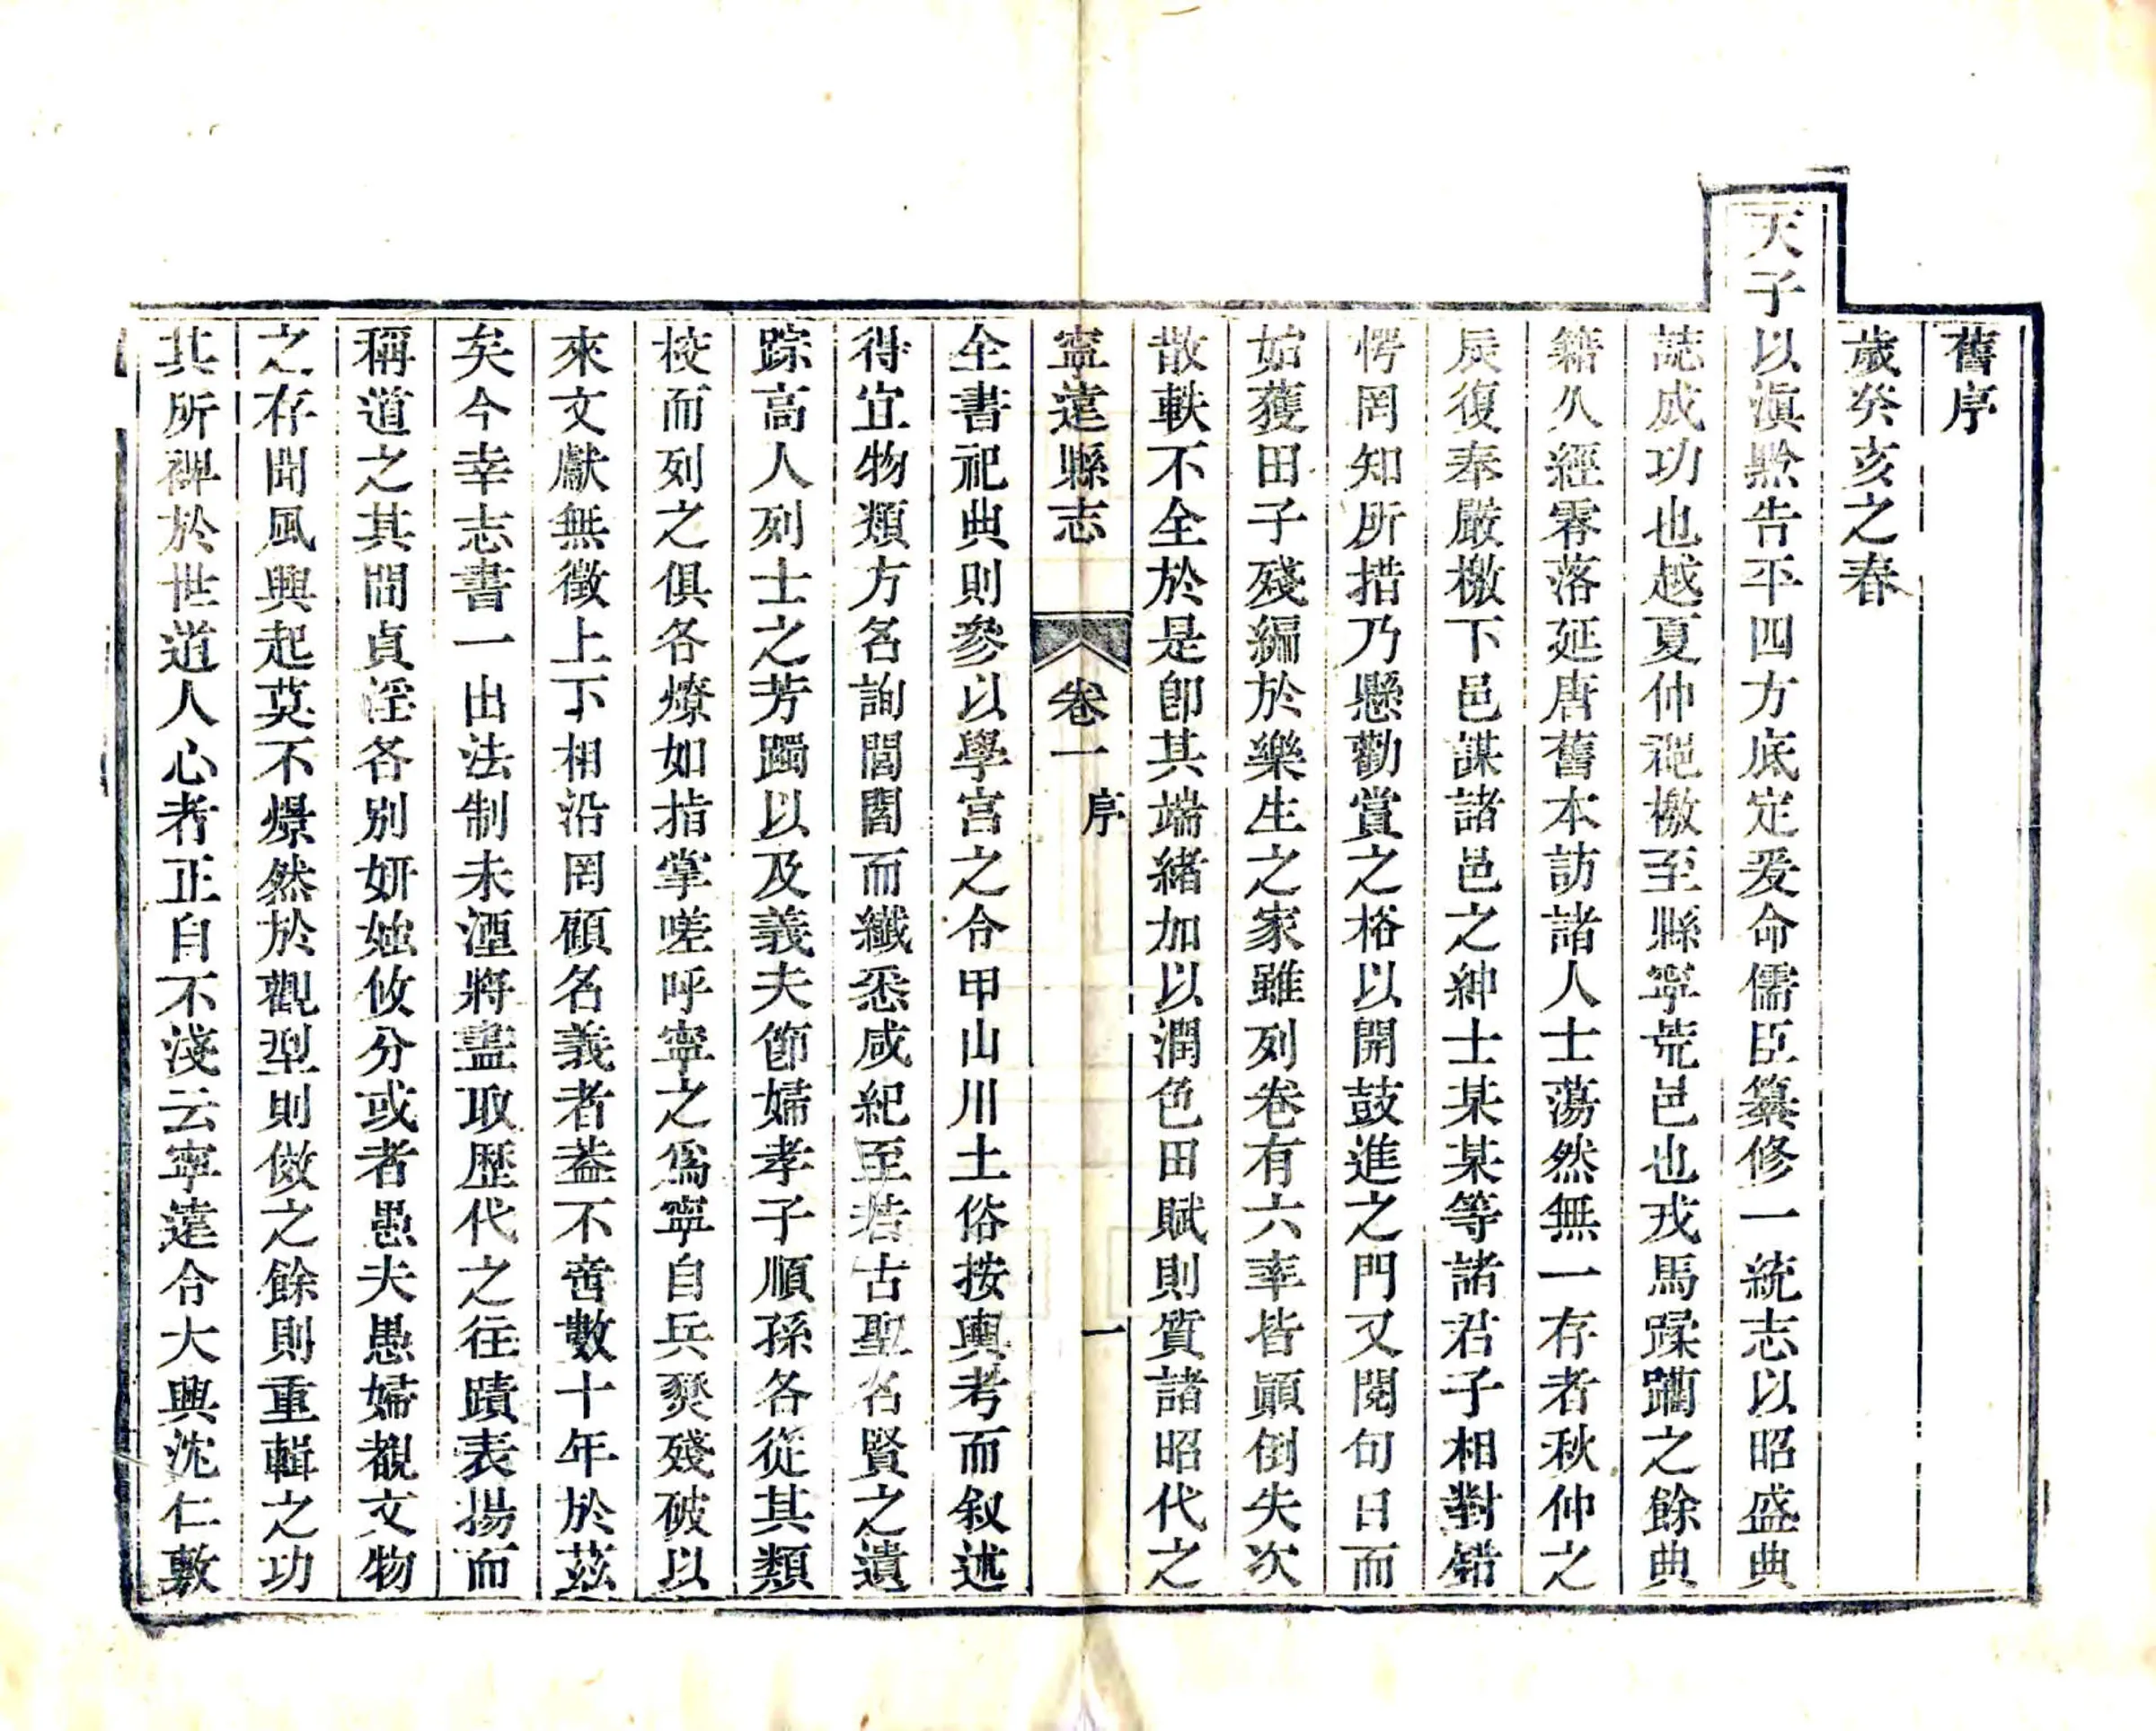 舊序
歲癸亥之春
天子以滇黔告平四方底定爰命儒臣纂修一統志以昭盛典
誌成功也越夏仲禩檄至縣寧荒邑也戎馬蹂躪之餘典
籍久經零落延唐舊本訪諸人士蕩然無一存者秋仲之
辰復奉嚴檄下邑謀諸邑之紳士某某等諸君子相對錯
愕罔知所措乃懸勸賞之格以開鼓進之門又閱旬日而
始獲田子殘編於樂生之家雖列卷有六率皆顚倒失次
散軼不全於是卽其端緒加以潤色田賦則質諸昭代之
寧遠縣志 卷一 序 一
全書祀典則參以學宮之令甲山川土俗按輿考而叙述
得宜物類方名詢閭閻而纖悉咸紀至若古聖名賢之遺
踪高人列士之芳躅以及義夫節婦孝子順孫各從其類
挍而列之俱各燎如指掌嗟呼寧之爲寧自兵燹殘破以
來文獻無徵上下相沿罔顧名義者葢不啻數十年於茲
矣今幸志書一出法制未湮將盡取歷代之往蹟表揚而
稱道之其間貞淫各別妍媸攸分或者愚夫愚婦覩文物
之存聞風興起莫不燝然於觀型則倣之餘則重輯之功
其所裨於世道人心者正自不淺云寧遠令大興沈仁敷